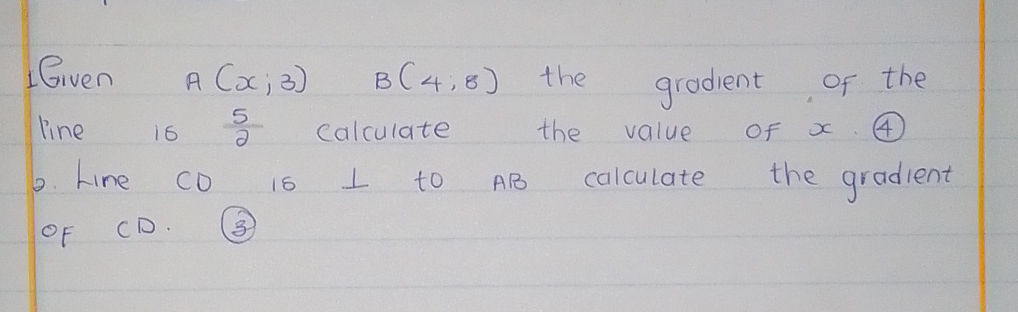 1. Given A (x; 3) B (4; 8) the gradient of the
line is 5/2 calculate the value of x. ④
b. Line CD is ⊥ to AB calculate the gradient
of CD. ③